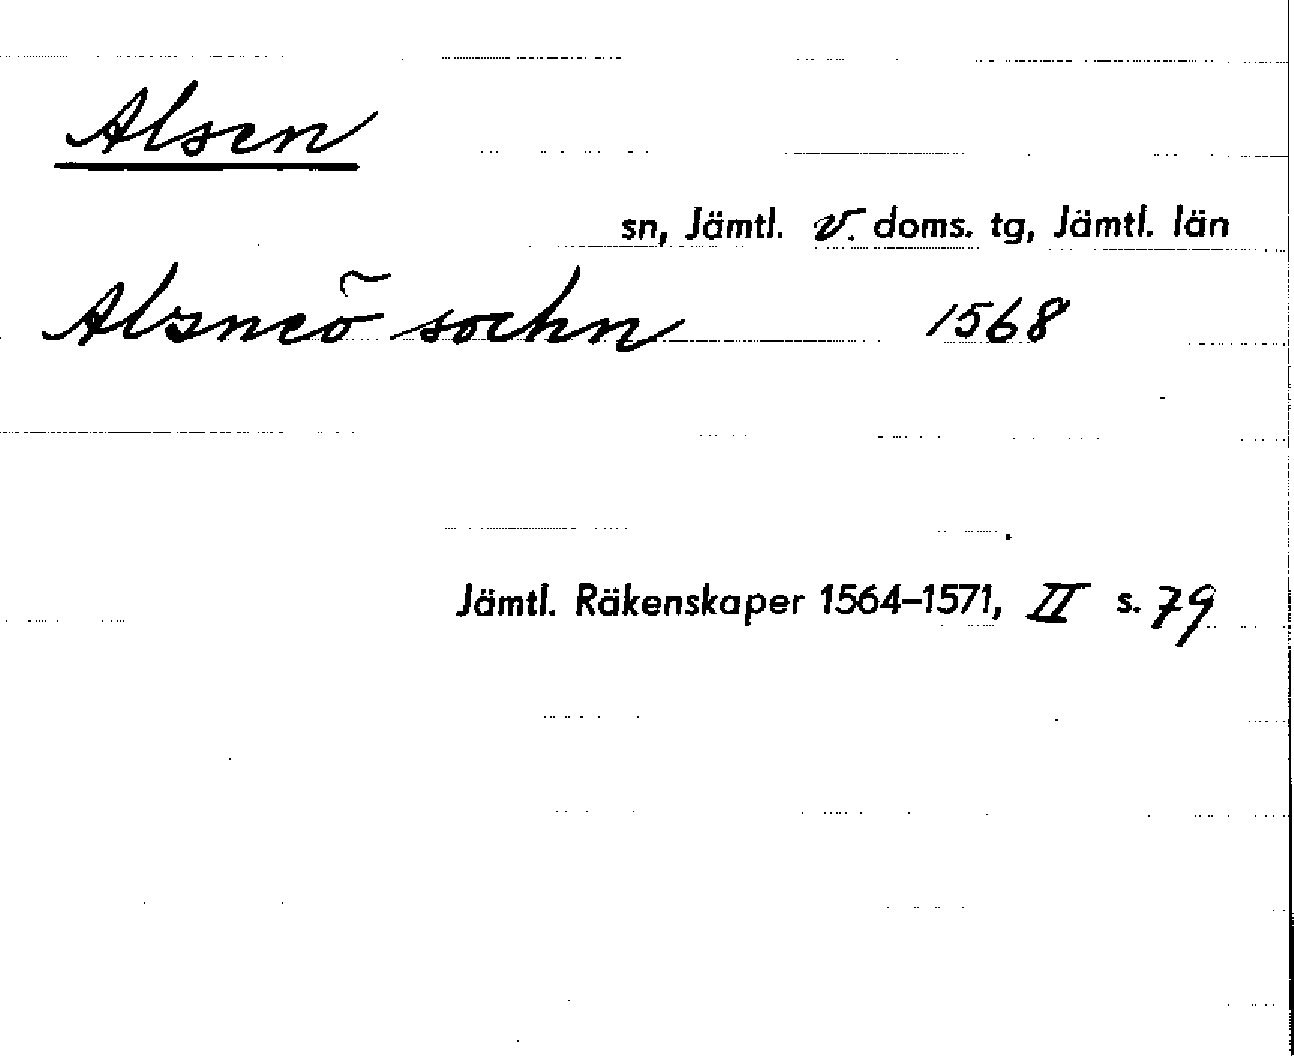 Alsen
sn, Jämtl. v. doms. tg, Jämtl. län
Alsneö sochn 1568
Jämtl. Räkenskaper 1564–1571, II s. 79